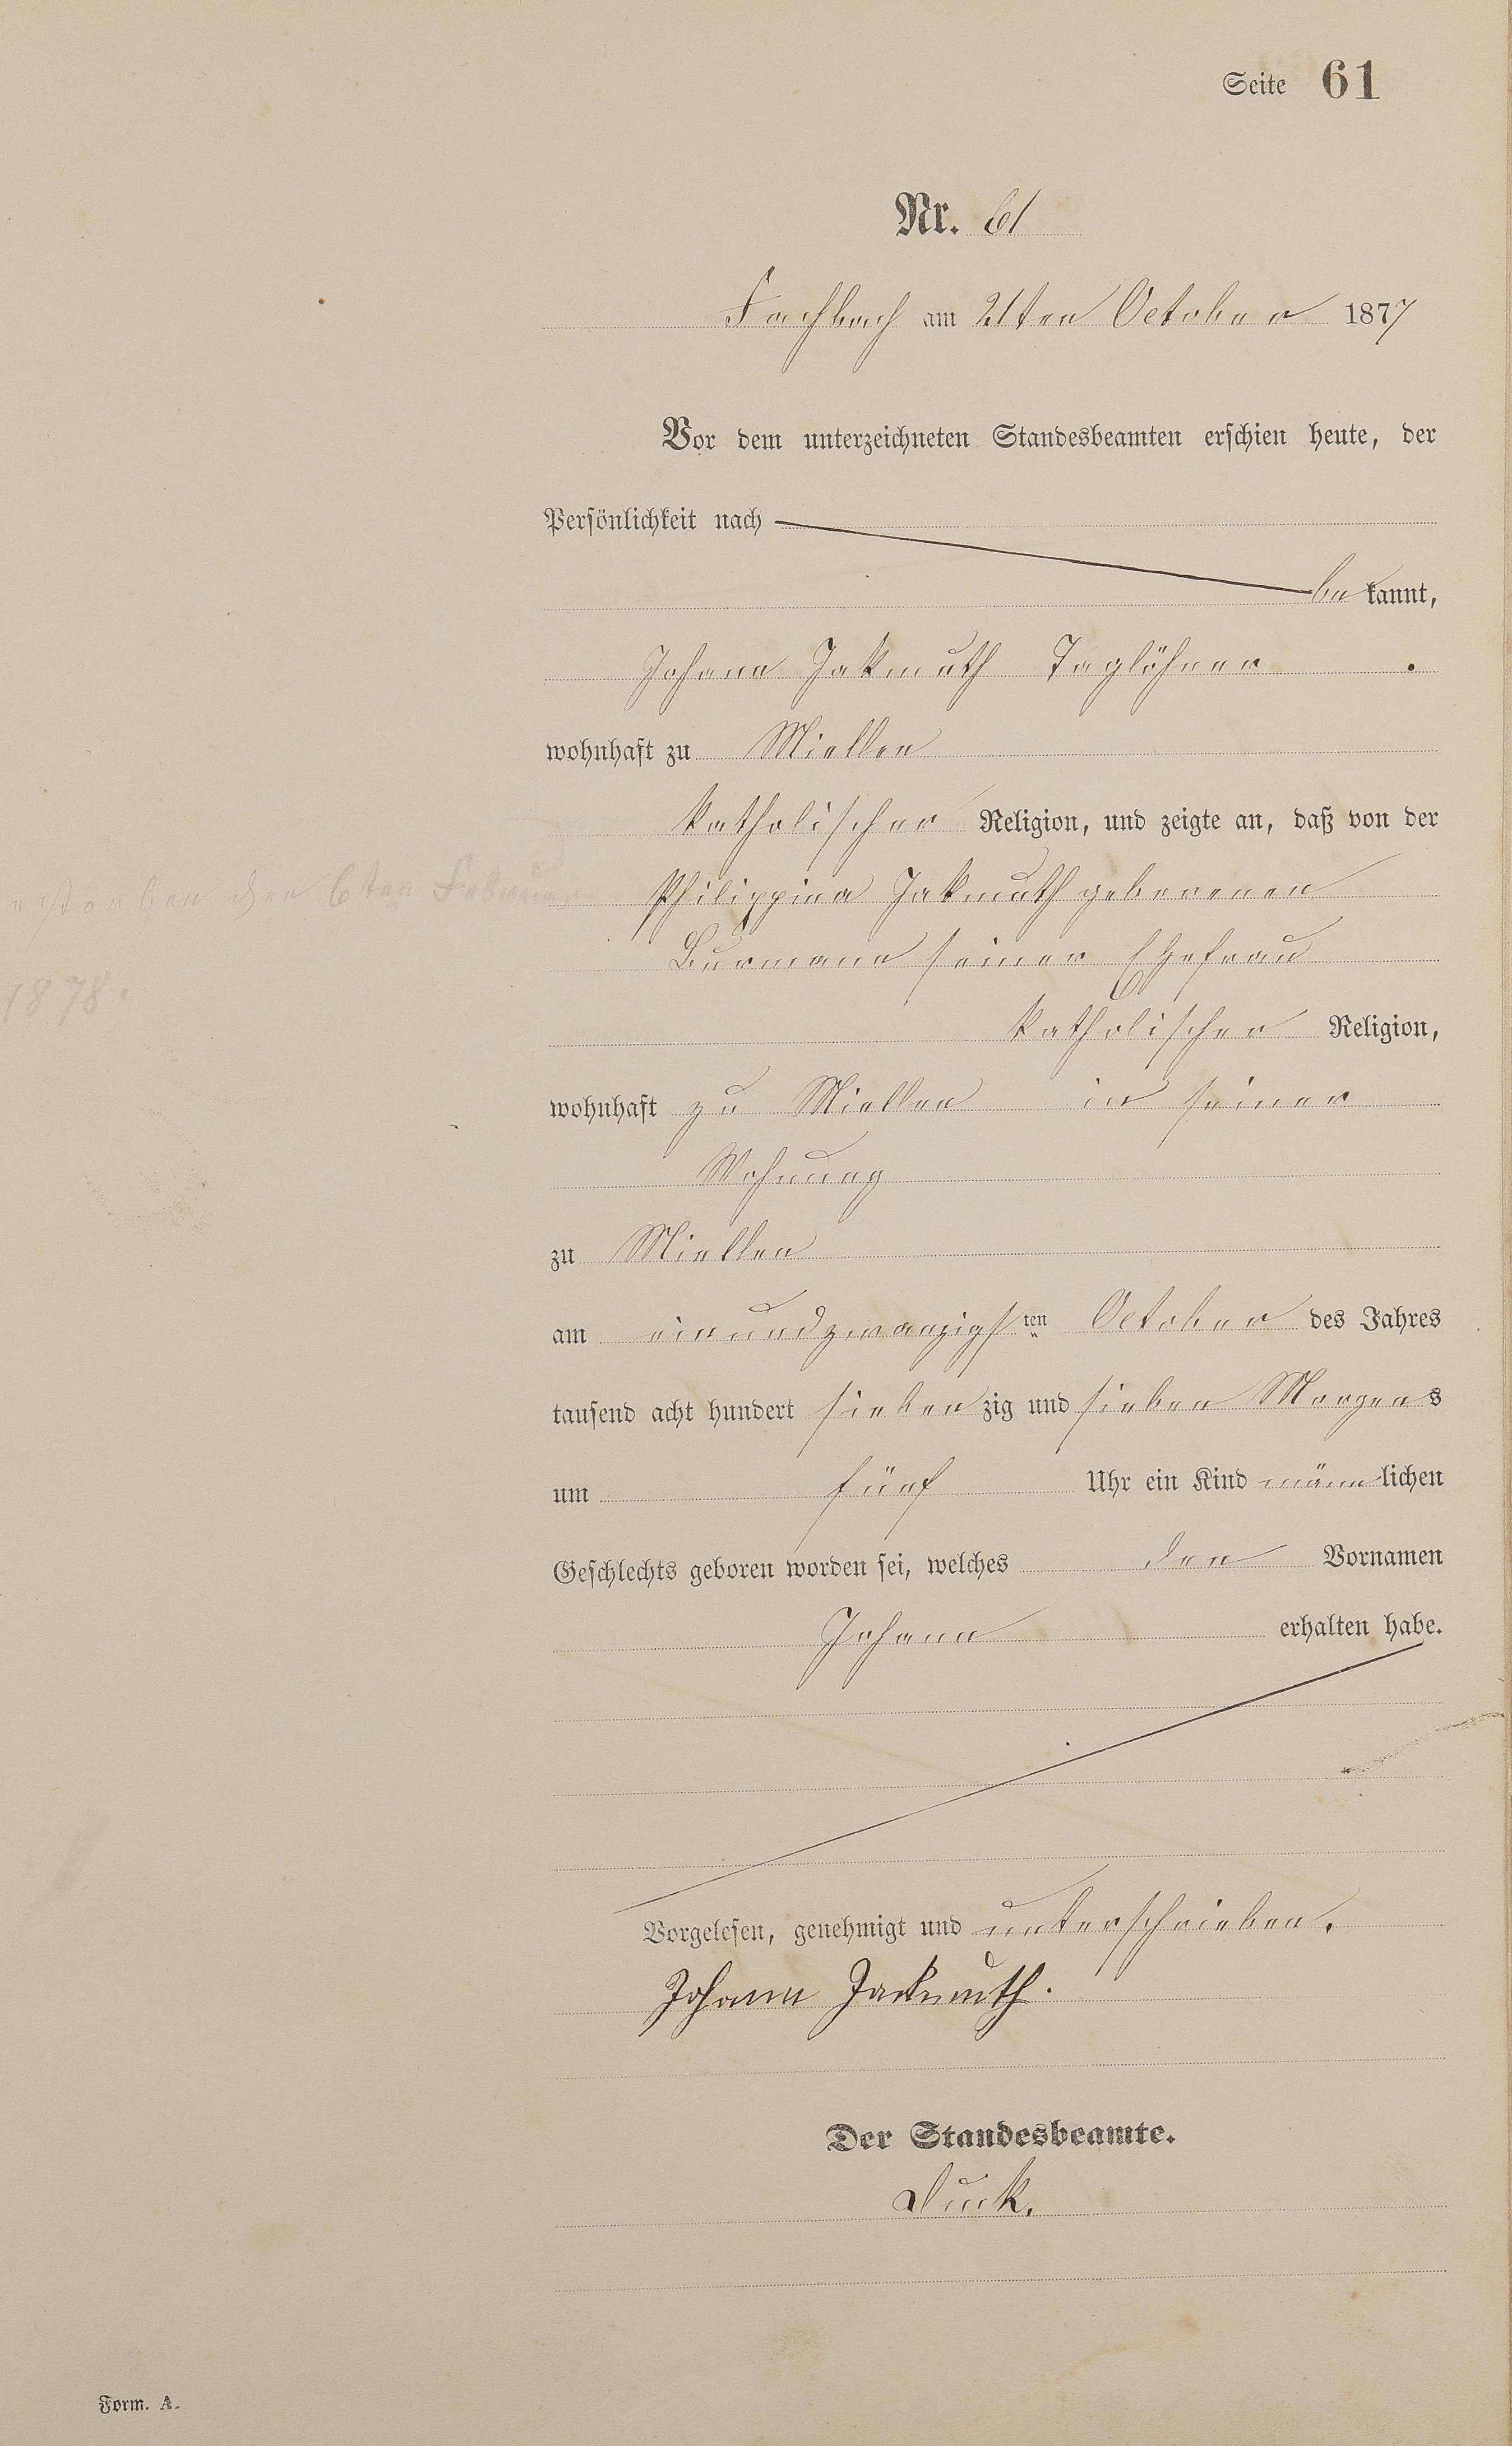 Seite 61
Nr. 61
Fachbach am 21ten October 1877
Vor dem unterzeichneten Standesbeamten erschien heute, der
Persönlichkeit nach
be kannt,
Johann Jakmuth Taglöhner
wohnhaft zu Miellen
katholischer Religion, und zeigte an, daß von der
Philippina Jakmuth geborenen
Burmann seiner Ehefrau
katholischer Religion,
wohnhaft zu Miellen in seiner
Wohnung
zu Miellen
am einundzwanzigsten October des Jahres
tausend acht hundert siebenzig und sieben Morgens
um fünf Uhr ein Kind männlichen
Geschlechts geboren worden sei, welches den Vornamen
Johann erhalten habe.
Vorgelesen, genehmigt und unterschrieben.
Johann Jackmuth.
Der Standesbeamte.
estorben den 6ten Februar
1878.
Form. A.